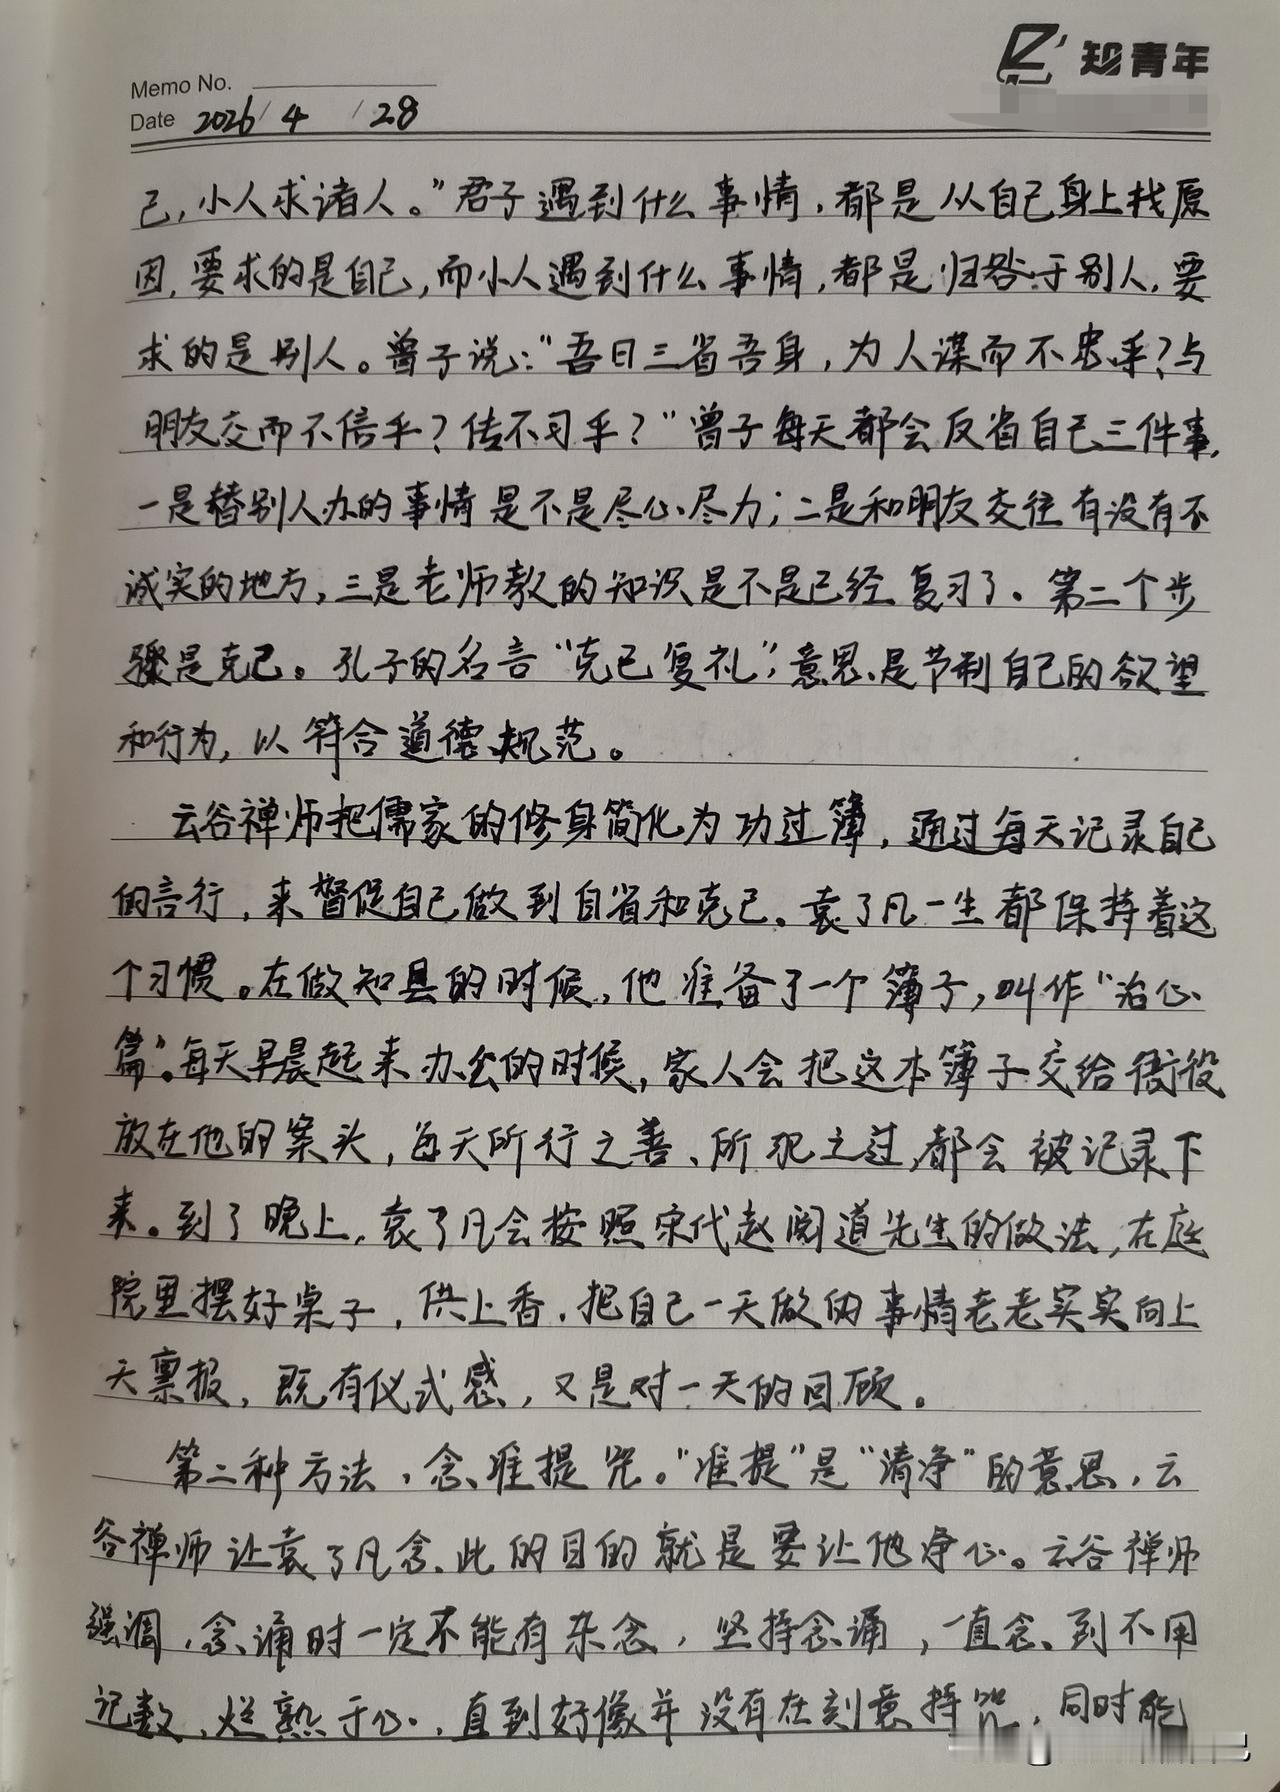 知青年
Memo No.
Date 2026/4/28
己，小人求诸人。”君子遇到什么事情，都是从自己身上找原
因，要求的是自己，而小人遇到什么事情，都是归咎于别人，要
求的是别人。曾子说：“吾日三省吾身，为人谋而不忠乎？与
朋友交而不信乎？传不习乎？”曾子每天都会反省自己三件事，
一是替别人办的事情是不是尽心尽力；二是和朋友交往有没有不
诚实的地方，三是老师教的知识是不是已经复习了。第二个步
骤是克己。孔子的名言“克己复礼”，意思是节制自己的欲望
和行为，以符合道德规范。
云谷禅师把儒家的修身简化为功过簿，通过每天记录自己
的言行，来督促自己做到自省和克己。袁了凡一生都保持着这
个习惯。在做知县的时候，他准备了一个簿子，叫作“治心
篇”。每天早晨起来办公的时候，家人会把这本簿子交给衙役
放在他的案头，每天所行之善、所犯之过，都会被记录下
来。到了晚上，袁了凡会按照宋代赵阅道先生的做法，在庭
院里摆好桌子，供上香，把自己一天做的事情老老实实向上
天禀报，既有仪式感，又是对一天的回顾。
第二种方法，念准提咒。“准提”是“清净”的意思，云
谷禅师让袁了凡念此的目的就是要让他净心。云谷禅师
强调，念诵时一定不能有杂念，坚持念诵，一直念到不用
记数，烂熟于心，直到好像并没有在刻意持咒，同时能